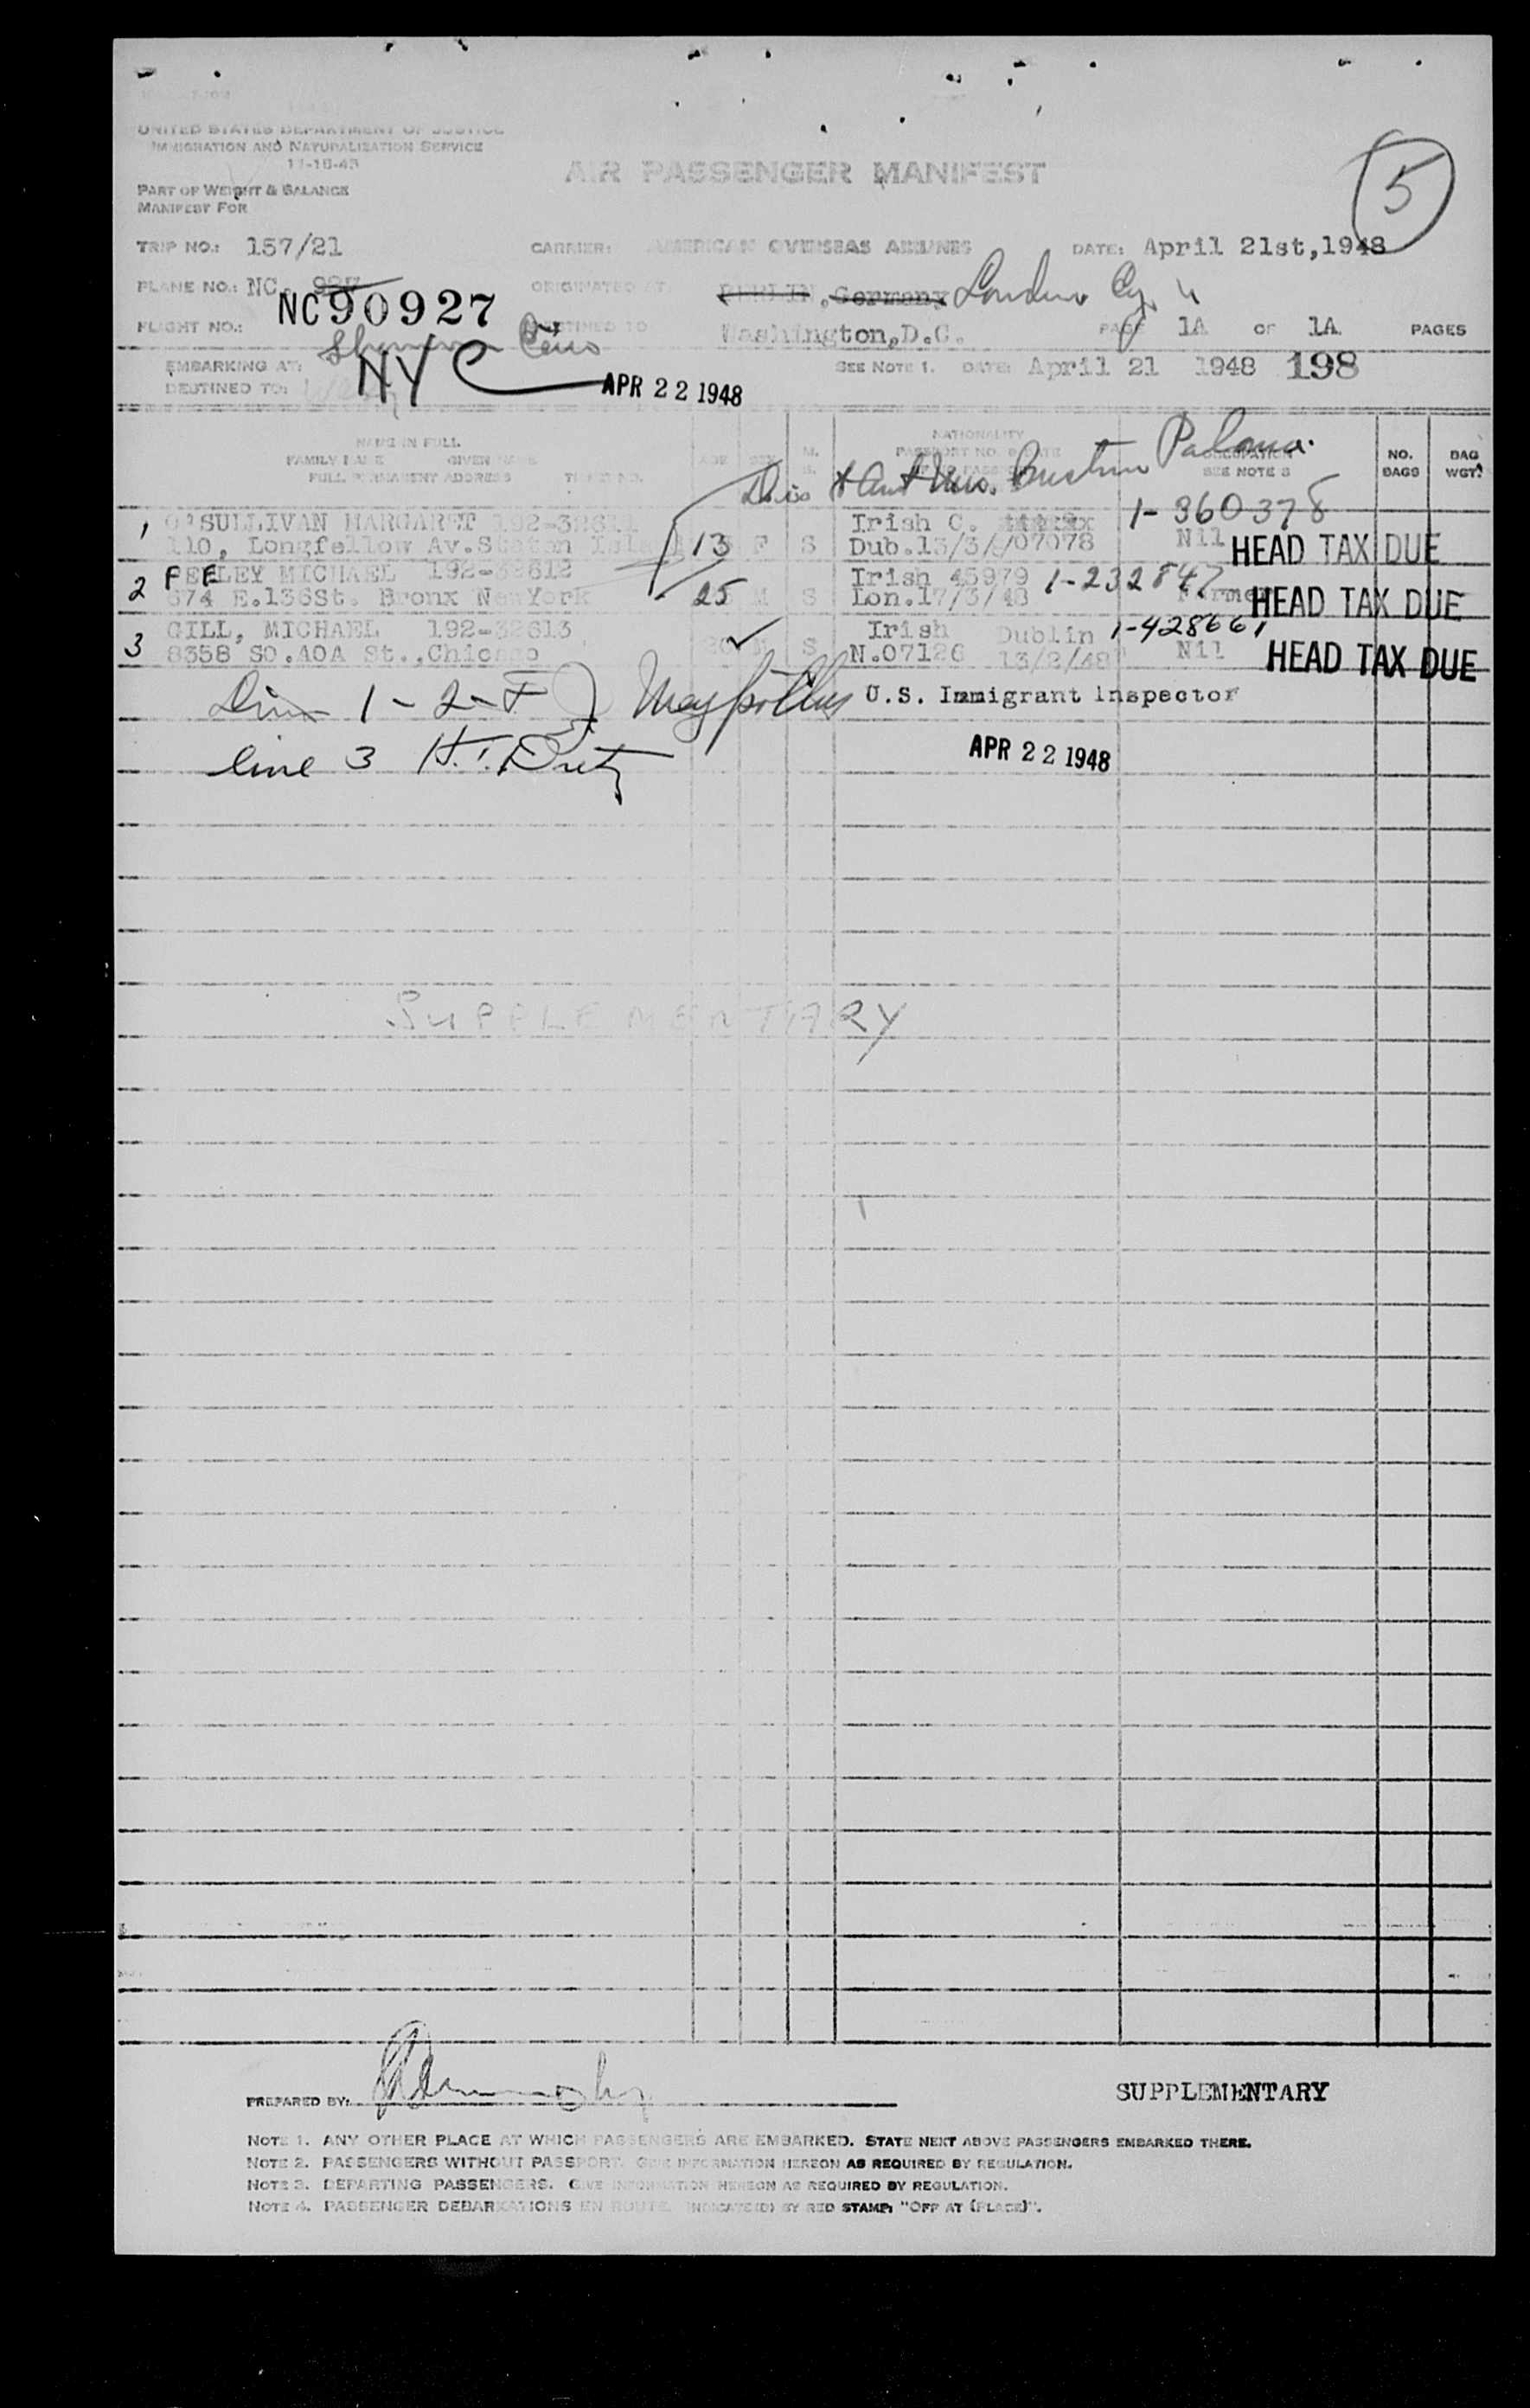 UNITED STATES DEPARTMENT OF JUSTICE
IMMIGRATION AND NATURALIZATION SERVICE
11-18-43
AIR PASSENGER MANIFEST
5
PART OF WEIGHT & BALANCE
MANIFEST FOR
TRIP NO.: 157/21 CARRIER: AMERICAN OVERSEAS AIRLINES DATE: April 21st,1948
PLANE NO.: NC. 927 ORIGINATED AT BERLIN, Germany London
NC90927
FLIGHT NO.: DESTINED TO Washington,D.C. PAGE 1A OF 1A PAGES
EMBARKING AT: Shannon Eire SEE NOTE 1. DATE: April 21 1948 198
DESTINED TO: NYC APR 22 1948
NAME IN FULL
FAMILY NAME GIVEN NAME
FULL PERMANENT ADDRESS TICKET NO.
AGE SEX M. S. NATIONALITY PASSPORT NO. SEE NOTE 3 NO. BAGS BAG WGT.
1-360378
1 O'SULLIVAN MARGARET 192-32611 Irish C.
110, Longfellow Av.Staten Island 13 F S Dub.13/3/ /07078 Nil HEAD TAX DUE
2 FEELEY MICHAEL 192-32612 Irish 45979 1-232847
674 E.136St. Bronx NewYork 25 M S Lon.17/3/48 Farmer HEAD TAX DUE
3 GILL, MICHAEL 192-32613 Irish Dublin 1-428661
8358 SO.AOA St.,Chicago M S N.07126 13/2/48 Nil HEAD TAX DUE
1-2- U.S. Immigrant Inspector
line 3 APR 22 1948
SUPPLEMENTARY
PREPARED BY: SUPPLEMENTARY
NOTE 1. ANY OTHER PLACE AT WHICH PASSENGERS ARE EMBARKED. STATE NEXT ABOVE PASSENGERS EMBARKED THERE.
NOTE 2. PASSENGERS WITHOUT PASSPORT. GIVE INFORMATION HEREON AS REQUIRED BY REGULATION.
NOTE 3. DEPARTING PASSENGERS. GIVE INFORMATION HEREON AS REQUIRED BY REGULATION.
NOTE 4. PASSENGER DEBARKATIONS EN ROUTE INDICATE(D) BY RED STAMP: "OFF AT (PLACE)".